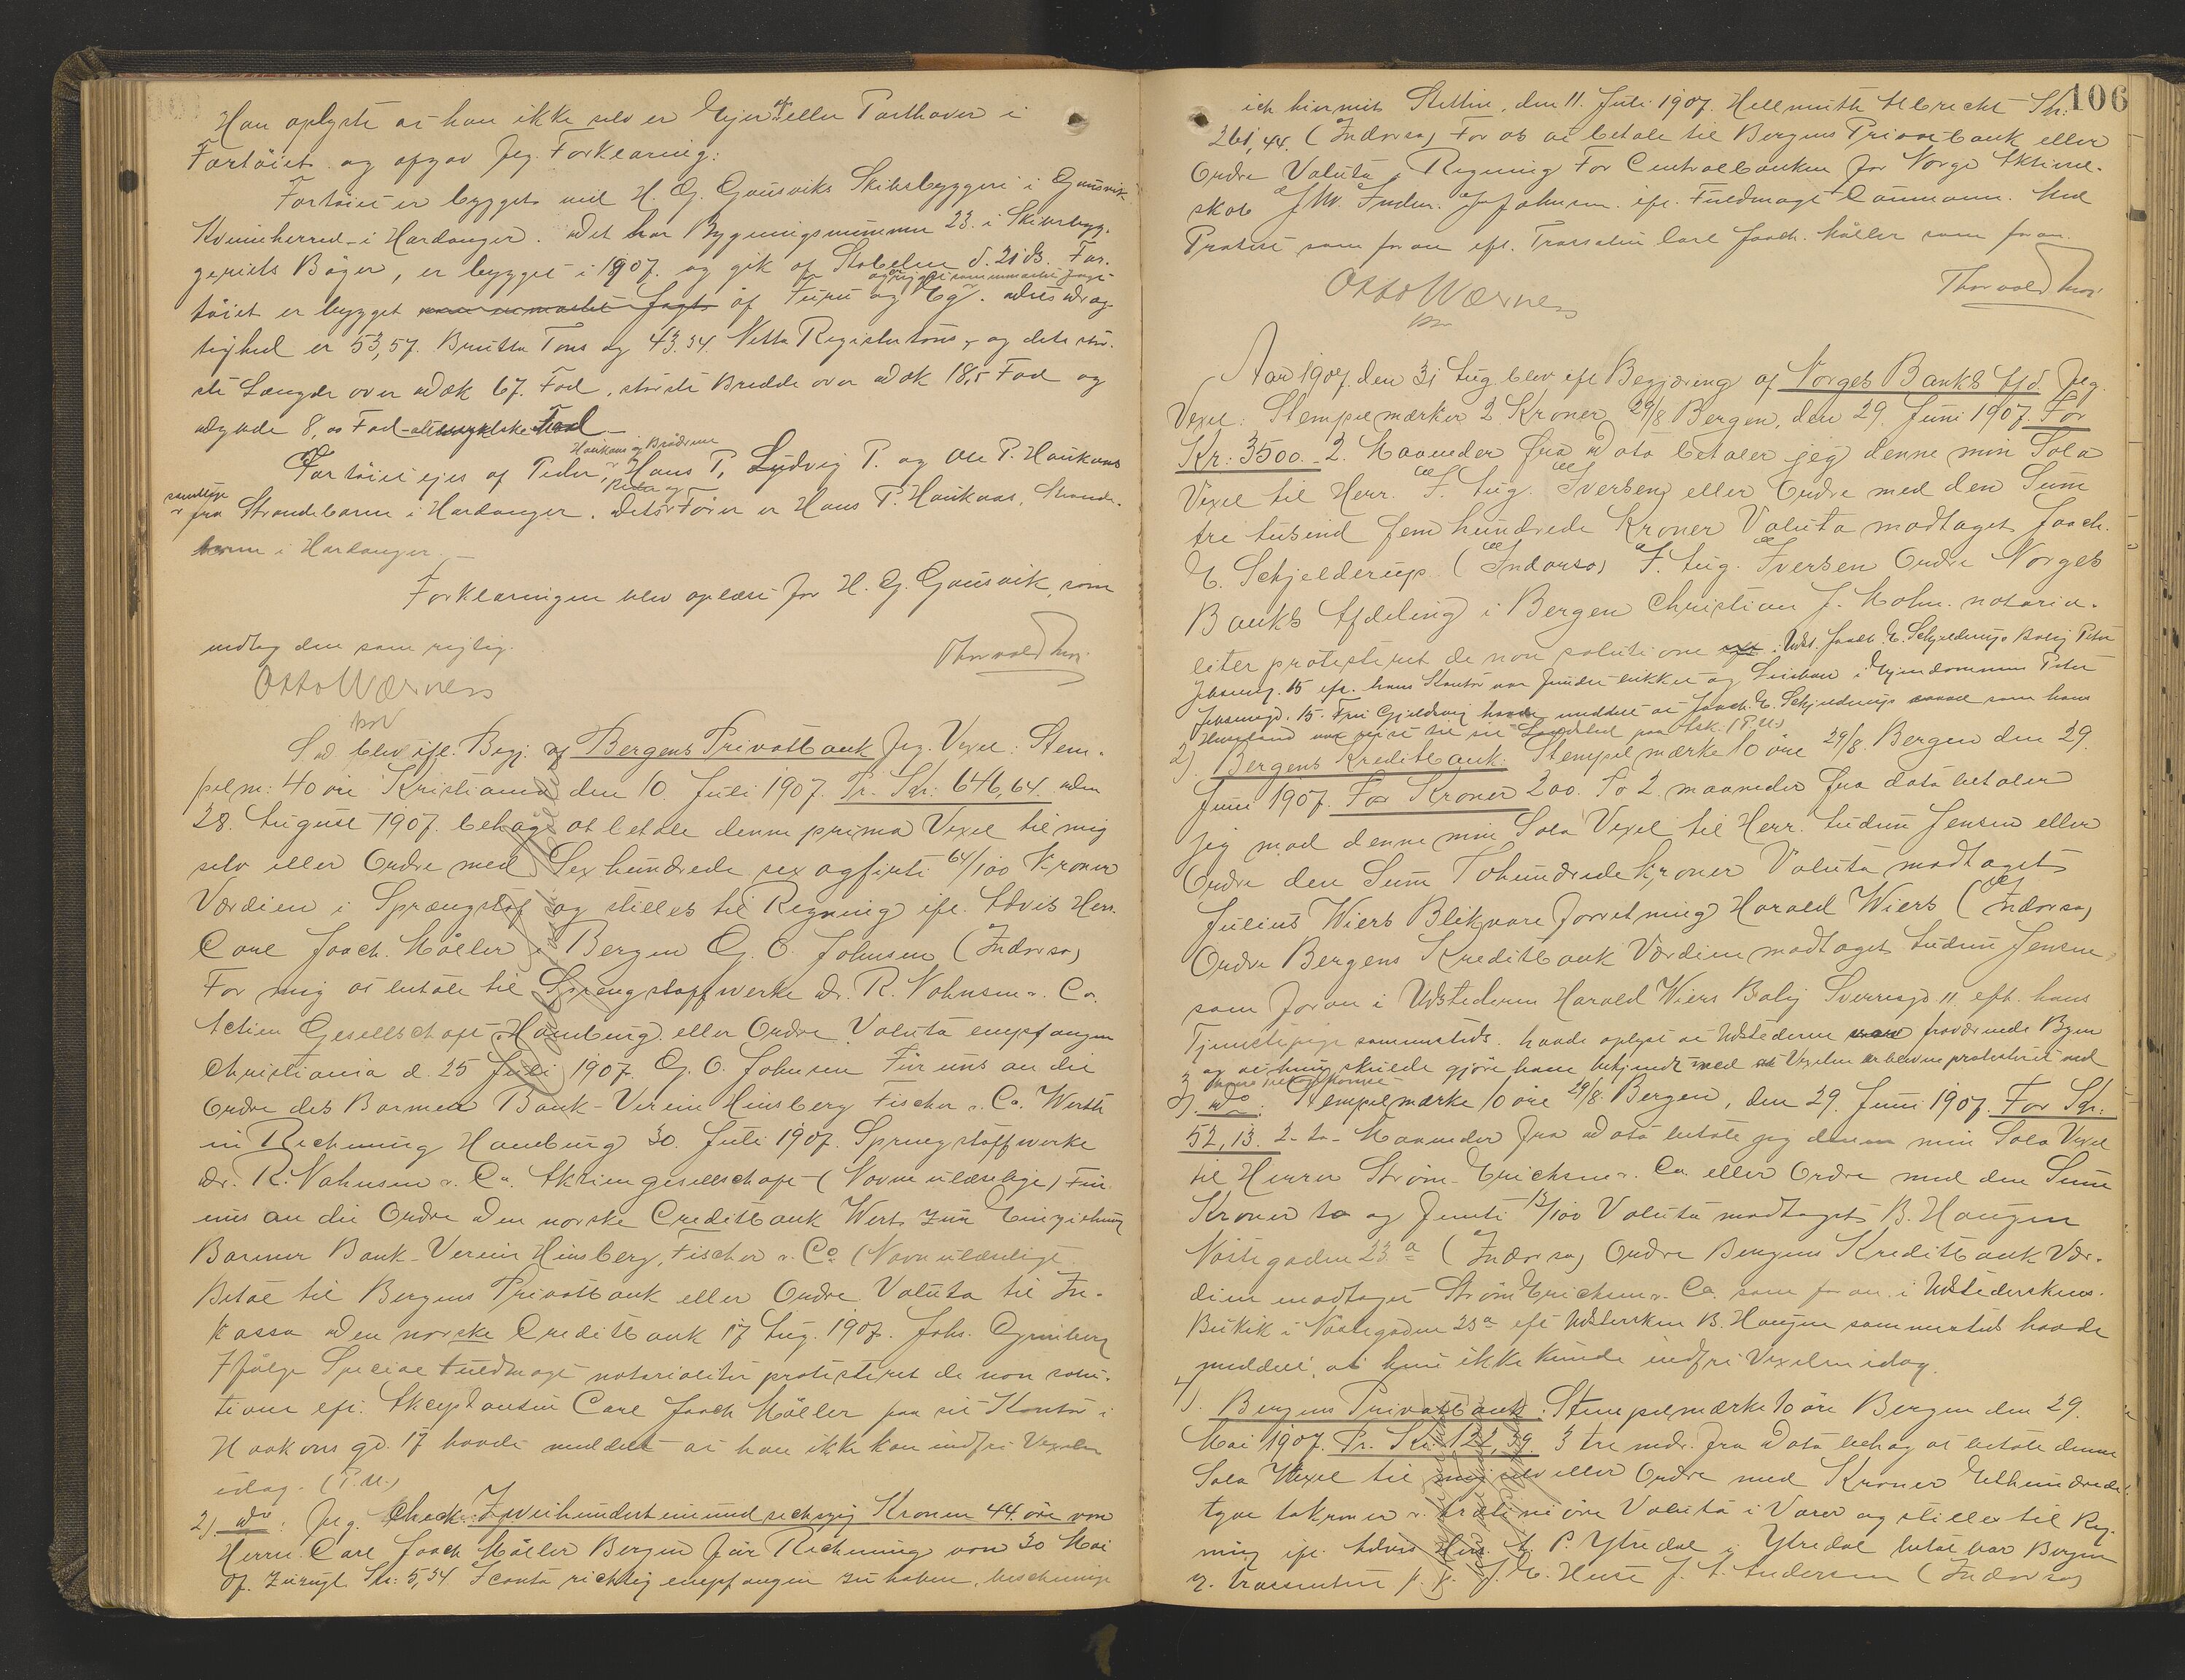 Han oplyste at han ikke selv er Ejer af eller Parthaver i
Fartöiet og afgav flg. Forklaring:
Fartöiet er bygget ved H. G. Gausviks Skibsbyggeri i Gausvik
Kvinnherred i Hardanger. Det har Bygningsnummer 23 i Skibsbyg-
geriets Böger, er bygget i 1907 og gik af Stabelen d. 21 ds. Far-
töiet er bygget af Furu og Eg. dets dræg-
og rigget som enmastet Jagt
tighed er 53,57. Brutto Tons og 43.34 Netto Registertons, og dets stör-
ste Længde over Dæk 67. Fod, störste Bredde over Dæk 18,5 Fod og
Dybde 8,00 Fod
Haukaas og Brödrene
Fartöiet ejes af Peder, Hans P, Ludvig P. og Ole P. Haukaas
samtlige
fra Strandebarm i Hardanger. Dets Förer er Hans P. Haukaas, Strande-
barm i Hardanger.
Forklaringen blev oplæst for H. G. Gausvik, som
vedtog den som rigtig.
Otto Wærnes
Thorvald
S. d. blev eft. Begj. af Bergens Privatbank flg. Vexel: Stem-
pelm: 40 öre Kristiania den 10. Juli 1907. Pr. Skr: 646,64. den
28. August 1907. behag at betale denne prima Vexel til mig
selv eller Ordre med Sex hundrede sex og firti 64/100 Kroner
Værdien i Sprængstof og stilles til Regning eft. Advis Herr.
Carl Joach. Möller i Bergen G. O. Johnsen (Indorso)
For mig at betale til Sprengstoffwerke Dr. R. Nahnsen & Co.
Actien Gesellschaft Hamburg eller Ordre Valuta empfangen
Christiania d. 25 Juli 1907. G. O. Johnsen Für uns an die
Ordre des Barmer Bank-Verein Hinsberg Fischer & Co. Werth
in Rechnung Hamburg 30. Juli 1907. Sprengstoffwerke
Dr. R. Nahnsen & Co. Aktiengesellschaft (Navne ulæselige) Für
uns an die Ordre Den norske Creditbank Wert zum Einziehung
Barmer Bank-Verein Hinsberg, Fischer & Co. (Navn ulæselige
Betal til Bergens Privatbank eller Ordre Valuta til In-
kasso Den norske Creditbank 17 Aug. 1907. Johs. Grünberg
Ifölge Special Fuldmagt notarialiter protesteret de non solu-
tione eft. Akceptanten Carl Joach Möller paa sit Kontor i
Haakons gd. 17 havde meddelt at han ikke kan indfri Vexelen
idag. (P. U.)
2) Do: flg. Check. Zweihundert einundsechszig Kronen 44. öre von
Herrn Carl Joach Möller Bergen für Rechnung von 30 Mai
Of. zuzügl. Skr: 5,34 Sconto richtig empfangen zu haben, bescheinige
106
ich hiermit Stettin, den 11. Juli 1907. Hellmuth Albrecht Skr:
261,44. (Indorso) For os at betale til Bergens Privatbank eller
Ordre Valuta i Regning For Centralbanken for Norge Aktiesel-
skab J. M. Fuden. J. Johnsen. eft. Fuldmagt Caumann. Med
Protest som foran eft. Trassaten Carl Joach. Möller som foran.
Otto Wærnes
Thorvald
Aar 1907. den 31 Aug. blev eft Begjæring af Norges Banks Afd. flg.
Vexel: Stempelmærker 2 Kroner 29/8 Bergen, den 29. Juni 1907. For
Kr: 3500. 2. Maaneder fra Dato betaler jeg denne min Sola
Vexel til Herr. F. Aug. Iversen eller Ordre med den Sum
tre tusend fem hundrede Kroner Valuta modtaget Joach.
E. Schjelderup. (Indorso) F. Aug. Iversen Ordre Norges
Banks Afdeling i Bergen Christian J. Mohn. notaria-
liter protesteret de non solutione i Udst. Joach E. Schjelderups Bolig Peter
Jebsensg. 15 eft. hans Kontor var fundet lukket og Leieboer i Eiendommen Peter
Jebsensgd. 15. Fru Gjeldsvig havde meddelt at Joach. E. Schjelderup som hans
Husstand var reist til sit Landsted paa Ask. (P.U)
2). Bergens Kreditbank: Stempelmærke 10 öre 29/8. Bergen den 29.
Juni 1907. For Kroner 200. To 2. maaneder fra dato betaler
jeg mod denne min Sola Vexel til Herr. Audun Jensen eller
Ordre den Sum Tohundrede kroner Valuta modtaget
Julius Wiers Blikvareforretning Harald Wiers (Indorso)
Ordre Bergens Kreditbank Værdien modtaget Audun Jensen
som foran i Udstederen Harald Wiers Bolig Sverresgd. 11. eft. hans
Tjenestepige sammesteds havde oplyst at Udstederen fraværende Byen
og at hun skulde gjöre ham bekjendt med Vexelen er bleven protesteret ved
hans Tilbagekomst
3) Do: Stempelmærke 10 öre 29/8. Bergen, den 29. Juni 1907. For Skr:
52,13. 2-to- Maaneder fra Dato betale jeg denne min Sola Vexel
til Herrer Ström-Erichsen & Co. eller Ordre med den Sum
Kroner to og femti 13/100 Valuta modtaget B. Haugen
Nöstegaden 23a (Indorso) Ordre Bergens Kreditbank Vær-
dien modtaget Ström Erichsen & Co. som foran i Udstederskens
Butik i Nöstegaden 23a eft Udstersken B. Haugen sammesteds havde
meddelt, at hun ikke kunde indfri Vexelen idag.
4). Bergens Privatbank: Stempelmærke 10 öre Bergen den 29.
Mai 1907. Pr. Kr: 122,39. 3 tre mdr. fra Dato behag at betale denne
Sola Vexel til mig selv eller Ordre med Kroner Ethundrede
tyve tokroner & trætini öre Valuta i Varer og stilles til Reg-
ning eft. Advis Herr. A. P. Ytredal i Ytredal betalbar Bergen
J. E. Huse J. A. Andersen (Indorso)